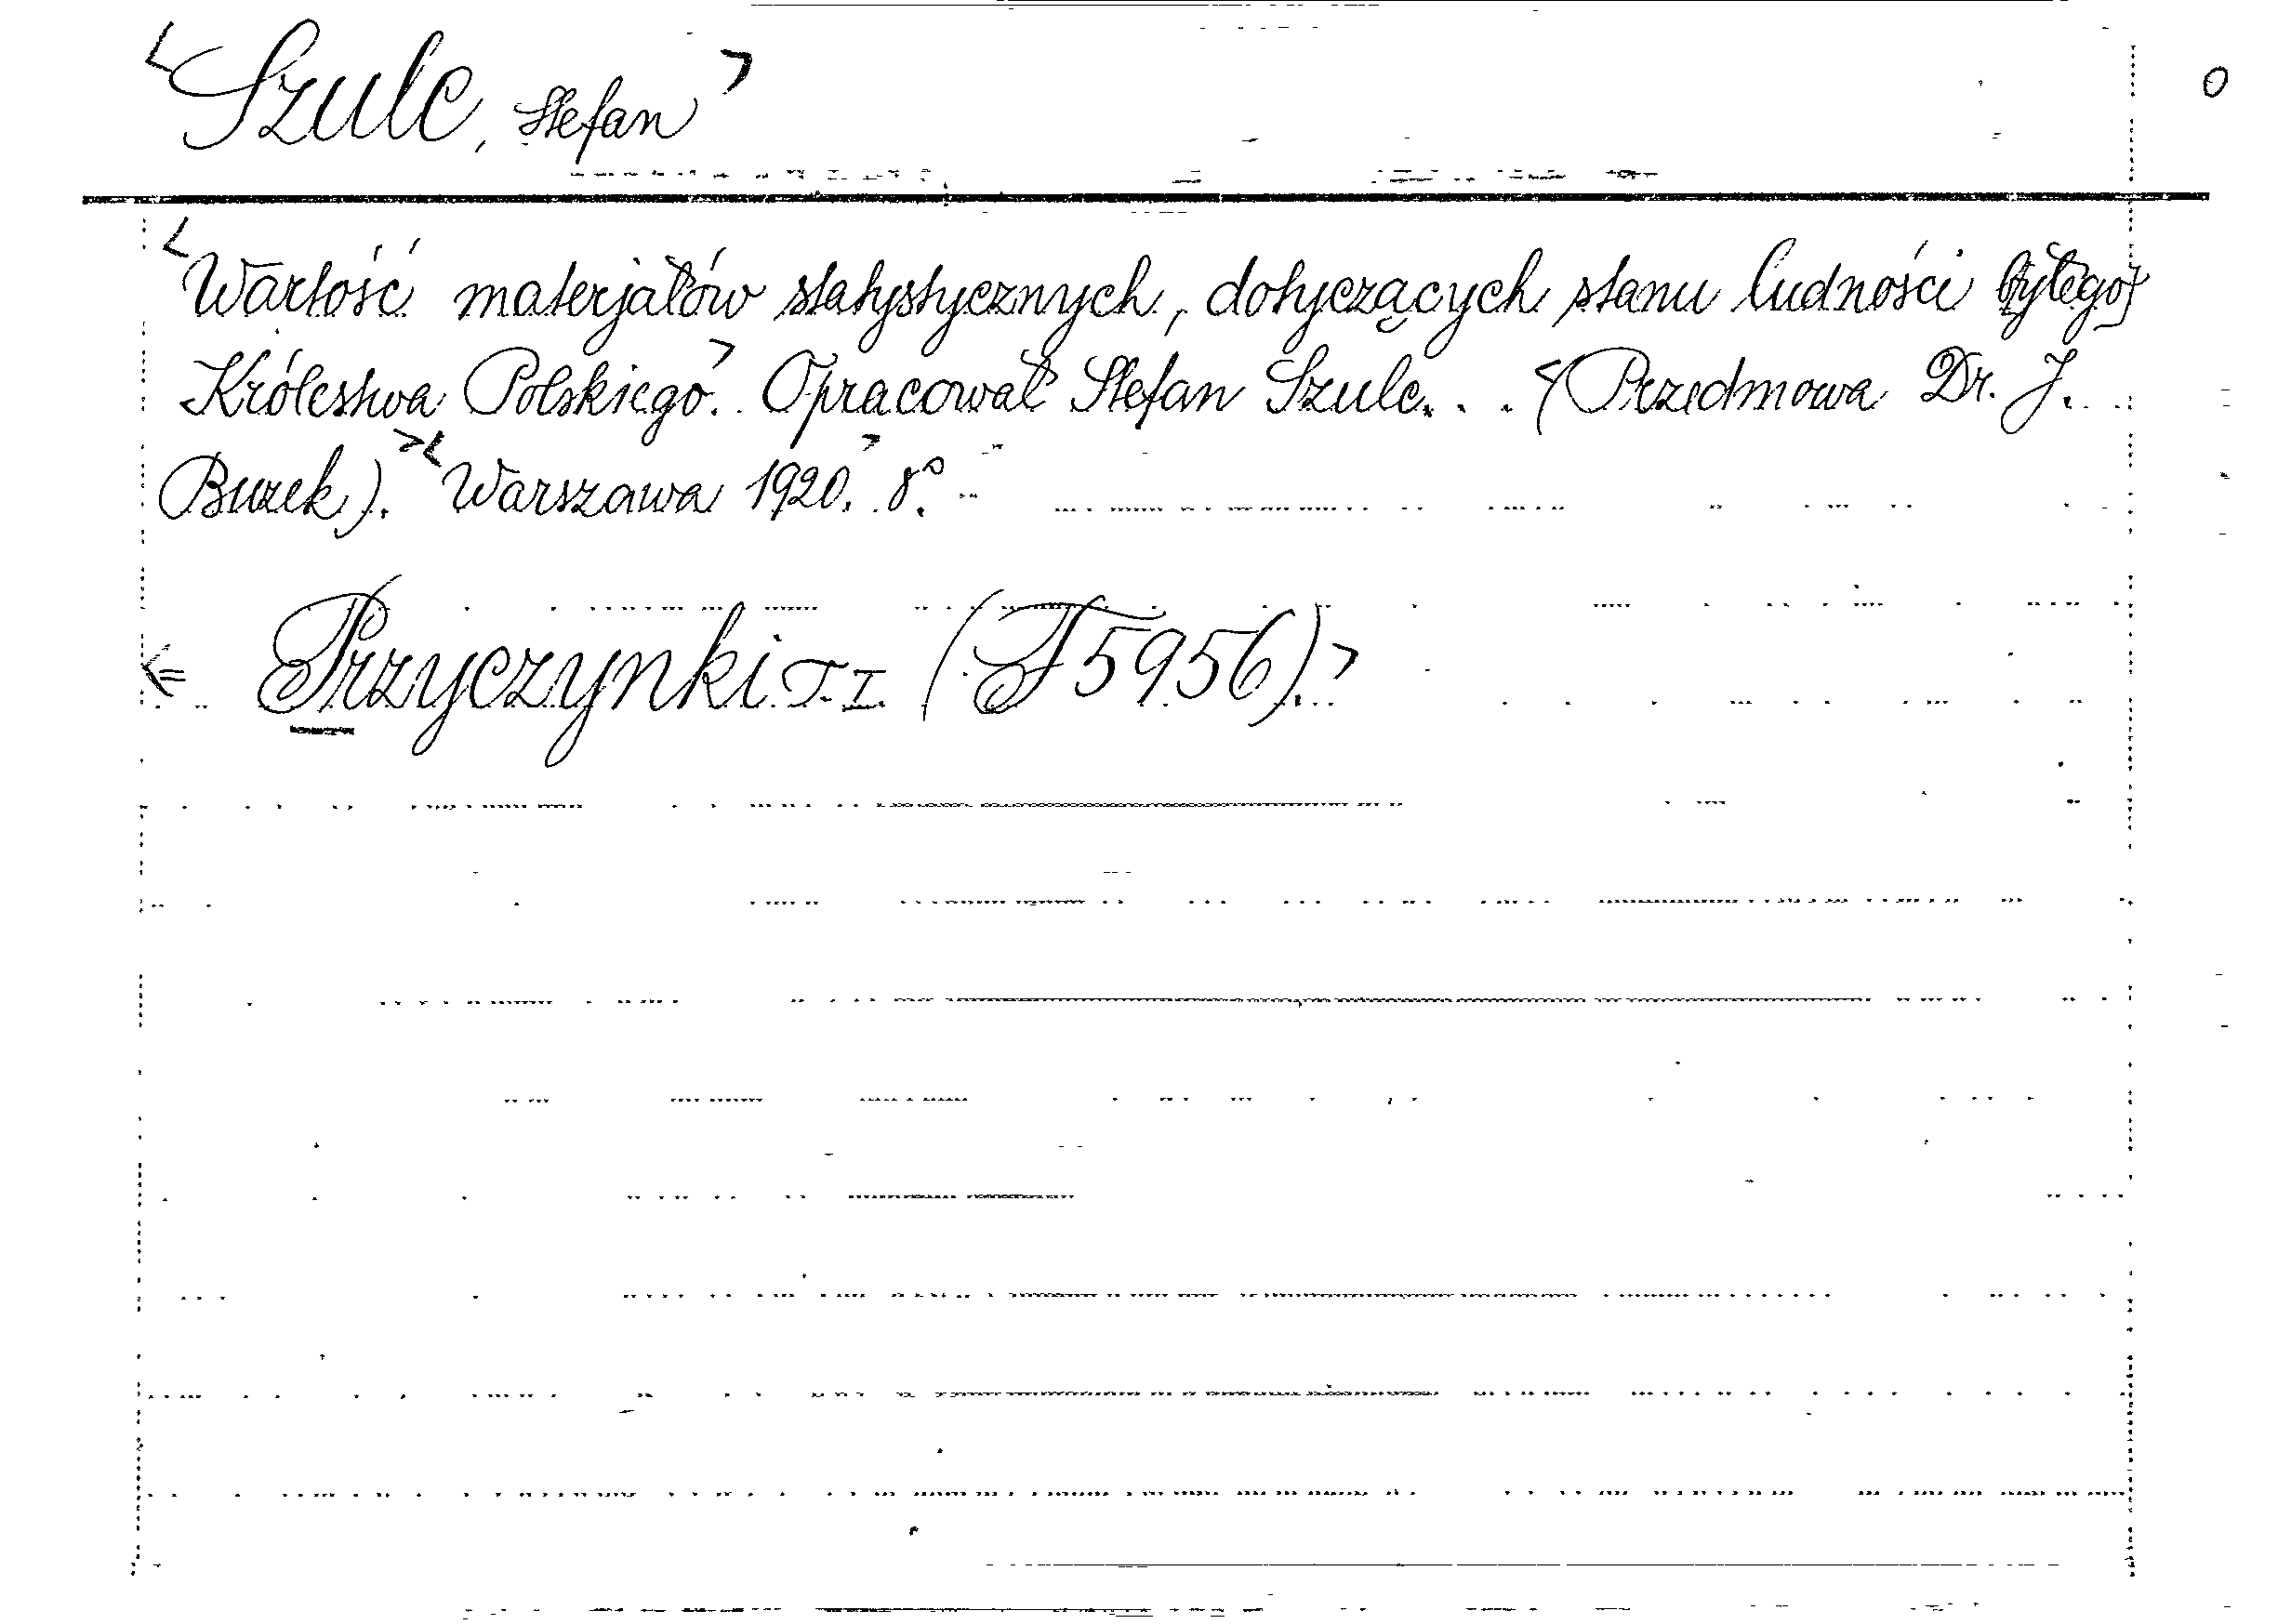 <Szulc, Stefan> 0
<Wartość materjałów statystycznych, dotyczących stanu ludności byłego
Królestwa Polskiego.> Opracował Stefan Szulc... <(Przedmowa Dr. J.
Buzek).> <Warszawa 1920.> 8°.
<= Przyczynki T. I. (F 5956).>